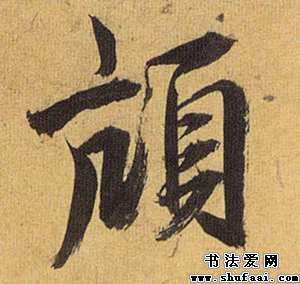 頏
书法爱网
www.shufaai.com